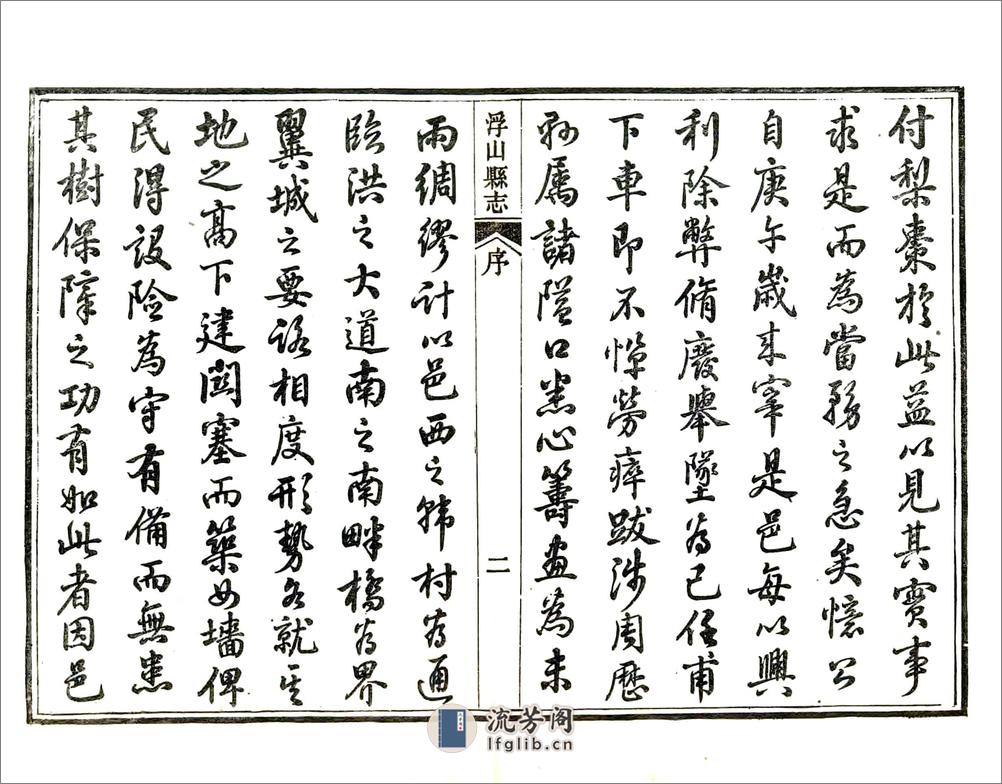 付梨棗於此益以見其實事
求是而為當務之急矣憶公
自庚午歲來宰是邑每以興
利除弊脩廢舉墜為己任甫
下車即不憚勞瘁跋涉周歷
勘屬諸隘口悉心籌畫為未
浮山縣志
序
二
雨綢繆計以邑西之韓村為通
臨洪之大道南之南畔橋為界
翼城之要路相度形勢各就其
地之高下建閎塞而築女墻俾
民得設險為守有備而無患
其樹保障之功有如此者因邑
流芳阁
lfglib.cn